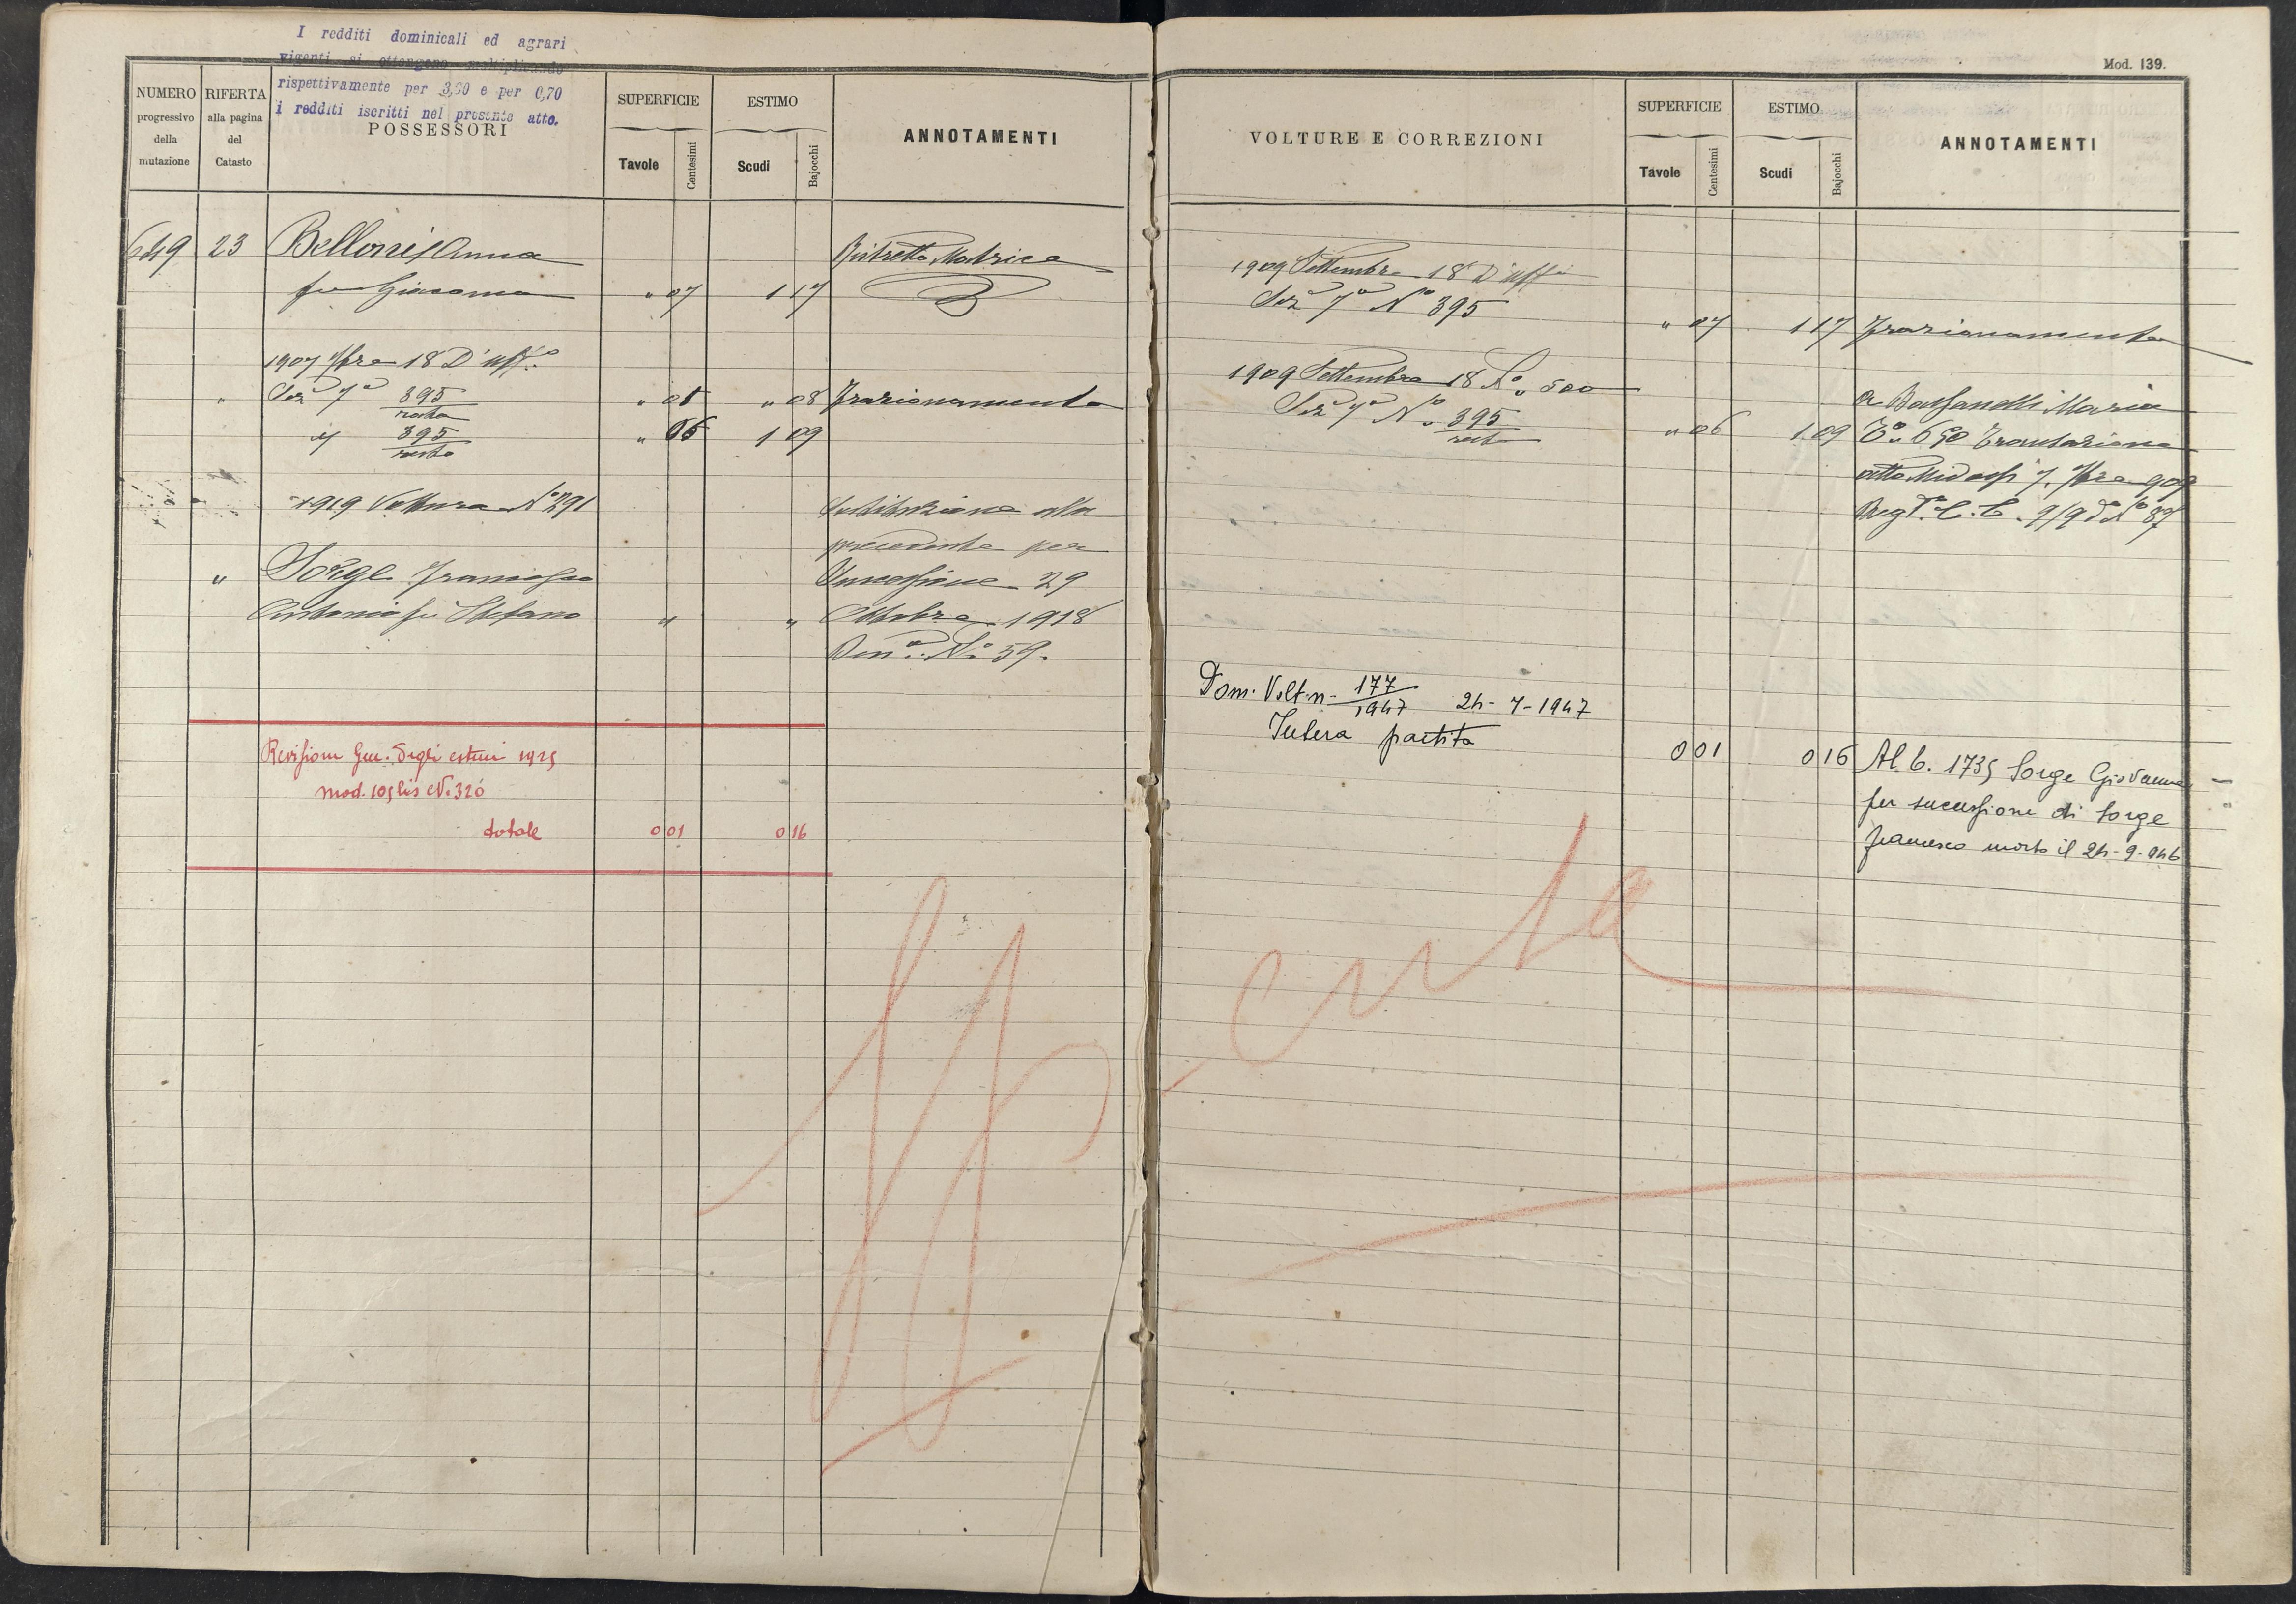 I redditi dominicali ed agrari
vigenti si ottengono moltiplicando
rispettivamente per 3,60 e per 0,70
i redditi iscritti nel presente atto.
NUMERO progressivo della mutazione
RIFERTA alla pagina del Catasto
POSSESSORI
SUPERFICIE
Tavole Centesimi
ESTIMO
Scudi Bajocchi
ANNOTAMENTI
649 23 Belloni Anna Ristretto Matrice
fu Giacomo " 07 1 17
1907 7bre 18 D'uff.o
" Sez.a 7a 395 " 01 " 08 Frazionamento
rata
" 395 " 06 1 09
resto
1919 Voltura No 291 Sostituzione alla
precedente per
" Sorge Francesco Successione 29
Antonio fu Stefano " " Ottobre 1918
Den.a No 59.
Revisione Gen. degli estimi 1925
mod. 105 bis No. 320
totale 0 01 0 16
Spenta
Mod. 139.
VOLTURE E CORREZIONI
SUPERFICIE
Tavole Centesimi
ESTIMO
Scudi Bajocchi
ANNOTAMENTI
1909 Settembre 18 D'uff.
Sez.a 7a No 395
" 07 1 17 Frazionamento
1909 Settembre 18 No. 500
Sez.a 7a No. 395 a Maria
resto " 06 1 09 650
atto 7. 7bre 909
Reg.to 9/9 do No 87
Dom. Volt. n. 177/1947 24-7-1947
Intera partita
0 01 0 16 Al C. 1735 Sorge Giovanna
per successione di Sorge
Francesco morto il 24-9-946